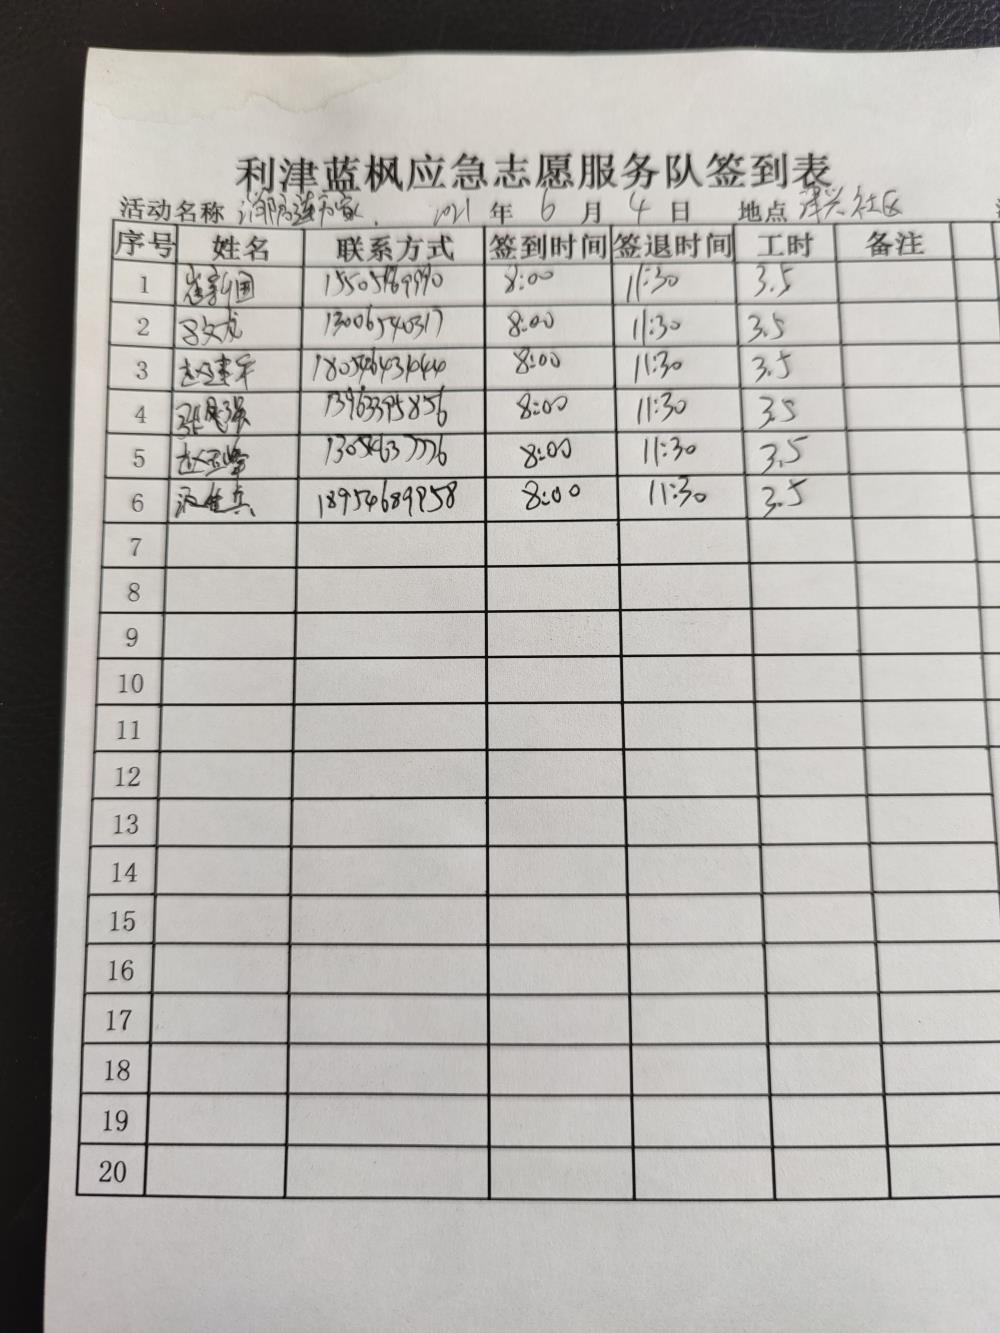 利津蓝枫应急志愿服务队签到表
活动名称 2021 年 6 月 4 日 地点 津兴社区
序号 姓名 联系方式 签到时间 签退时间 工时 备注
1 崔新国 8:00 11:30 3.5
2 吕文龙 13006540317 8:00 11:30 3.5
3 8:00 11:30 3.5
4 13963395856 8:00 11:30 3.5
5 8:00 11:30 3.5
6 18954689958 8:00 11:30 3.5
7
8
9
10
11
12
13
14
15
16
17
18
19
20